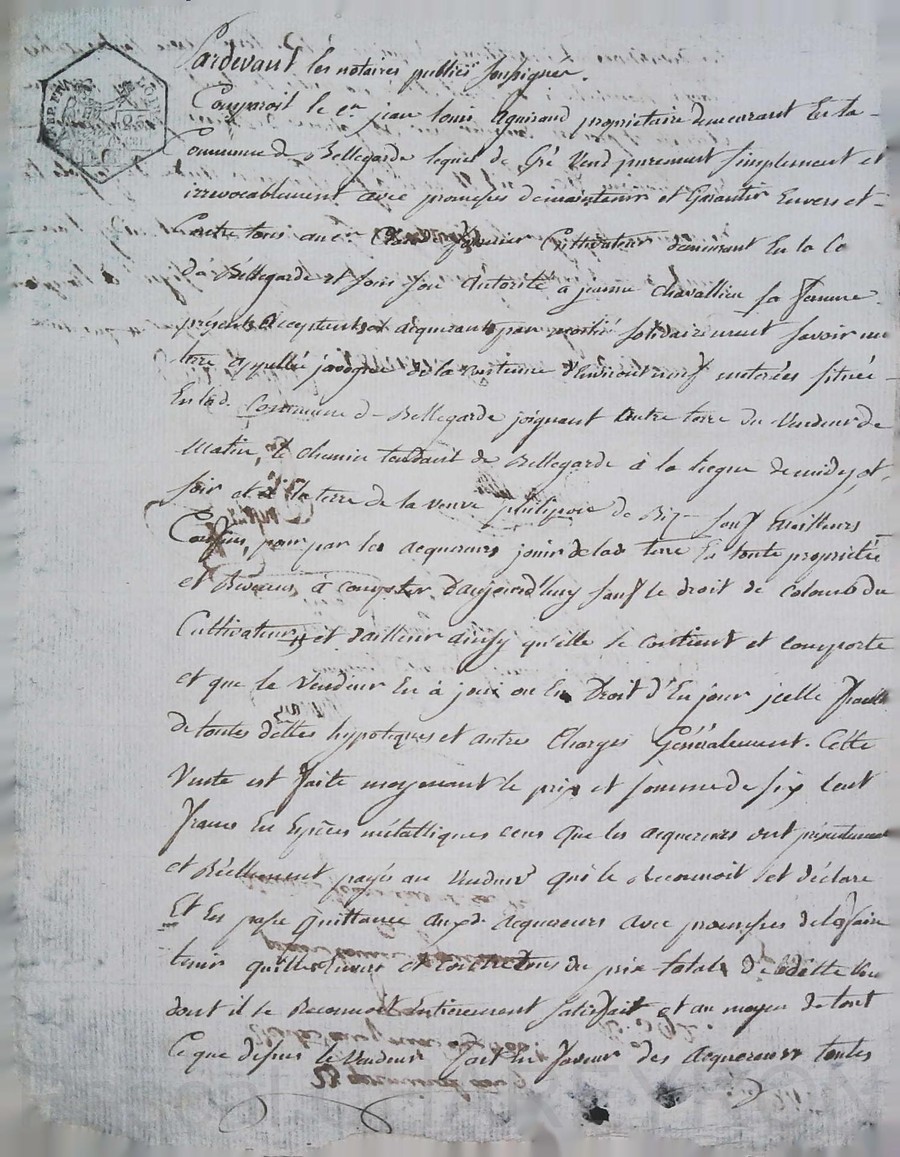 Pardevant les notaires publics soussignés.
Comparoit le cn jean louis Aguirand propriétaire demeurant En la
Commune de Bellegarde lequel de Gré Vend purement simplement et
irrevocablement avec promesses de maintenir et Garantir Envers et
Contre tous au cn Cultivateur demeurant En la Co
de Bellegarde et sous son Autorité à jeanne Chavallier sa femme
présents acceptants et acquerants par moitié solidairement savoir une
terre appellée de la contenue d'Environt neuf meterées située
En lad. Commune de Bellegarde joignant Autre terre du Vendeur de
Matin, le chemin tendant de Bellegarde à la de midy et
soir et à la terre de la veuve philipoie de Biz sauf meilleurs
Confins, pour par les acquereurs jouir de lade terre En toute propriétée
et Revenus à compter d'aujourd'huy sauf le droit de colomb du
Cultivateur, et dailleur ainsy qu'elle se contient et comporte
et que le Vendeur En à joui ou En Droit d'En jouir jcelle franche
de toutes dettes hypotiques et autres Charges Généralement. Cette
Vente est faite moyenant le prix et somme de six Cent
francs En Espèces métalliques ceus que les acquereurs ont présentement
et Réellement payés au Vendeur qui le reconnoit et déclare
Et En passe Quittance auxd. acquereurs avec promesses de la faire
tenir quille Envers et contre tous du prix total de ladette Ve
dont il se Reconnoit Entierement satisfait et au moyen de tout
Ce que dessus le Vendeur fait En faveur des acquereurs toutes